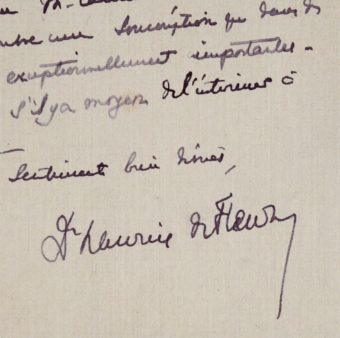 une souscription que dans des
exceptionnellement importantes.
s'il y a moyen de l'intéresser à
Sentiments bien dévoués,
Dr Maurice de Fleury